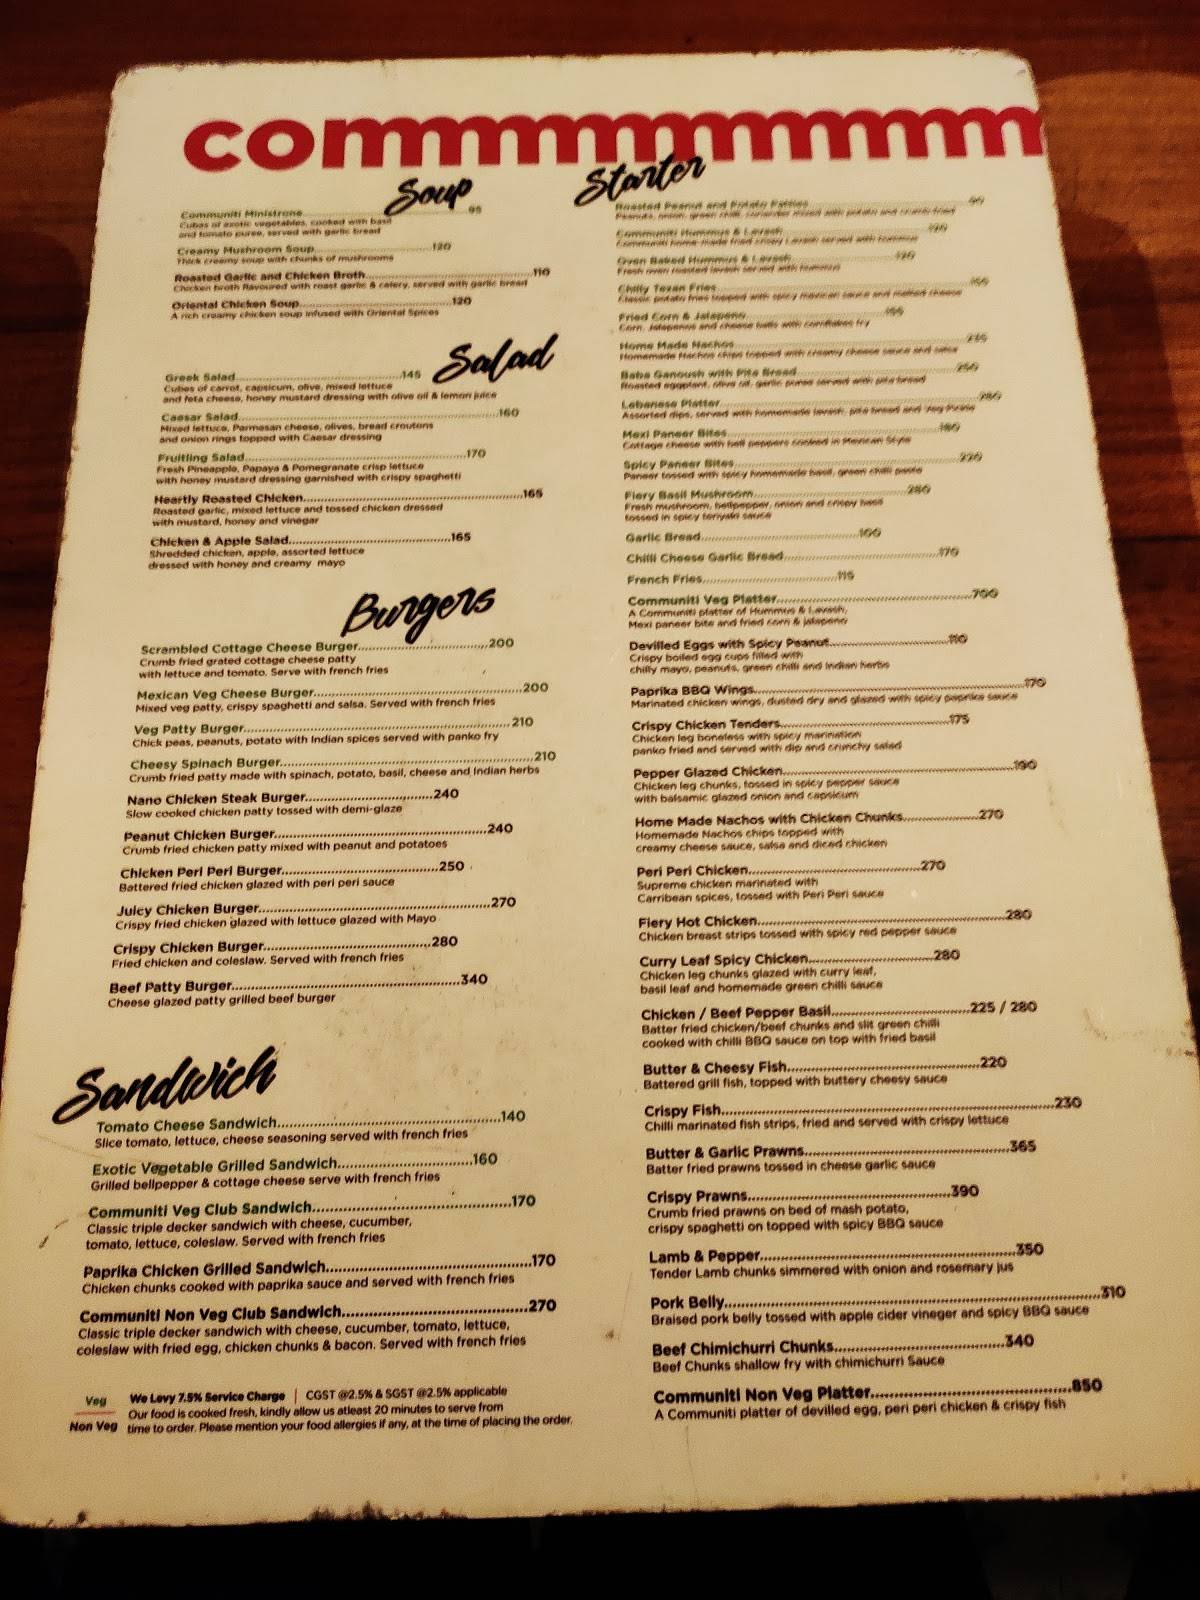 commmmmmmm
Soup
Communiti Ministrone 95
Cubes of exotic vegetables, cooked with basil
and tomato puree, served with garlic bread
Creamy Mushroom Soup 120
Thick creamy soup with chunks of mushrooms
Roasted Garlic and Chicken Broth 110
Chicken broth flavoured with roast garlic & celery, served with garlic bread
Oriental Chicken Soup 120
A rich creamy chicken soup infused with Oriental Spices
Salad
Greek Salad 145
Cubes of carrot, capsicum, olive, mixed lettuce
and feta cheese, honey mustard dressing with olive oil & lemon juice
Caesar Salad 160
Mixed lettuce, Parmesan cheese, olives, bread croutons
and onion rings topped with Caesar dressing
Fruitling Salad 170
Fresh Pineapple, Papaya & Pomegranate crisp lettuce
with honey mustard dressing garnished with crispy spaghetti
Heartly Roasted Chicken 165
Roasted garlic, mixed lettuce and tossed chicken dressed
with mustard, honey and vinegar
Chicken & Apple Salad 165
Shredded chicken, apple, assorted lettuce
dressed with honey and creamy mayo
Burgers
Scrambled Cottage Cheese Burger 200
Crumb fried grated cottage cheese patty
with lettuce and tomato. Serve with french fries
Mexican Veg Cheese Burger 200
Mixed veg patty, crispy spaghetti and salsa. Served with french fries
Veg Patty Burger 210
Chick peas, peanuts, potato with Indian spices served with panko fry
Cheesy Spinach Burger 210
Crumb fried patty made with spinach, potato, basil, cheese and Indian herbs
Nano Chicken Steak Burger 240
Slow cooked chicken patty tossed with demi-glaze
Peanut Chicken Burger 240
Crumb fried chicken patty mixed with peanut and potatoes
Chicken Peri Peri Burger 250
Battered fried chicken glazed with peri peri sauce
Juicy Chicken Burger 270
Crispy fried chicken glazed with lettuce glazed with Mayo
Crispy Chicken Burger 280
Fried chicken and coleslaw. Served with french fries
Beef Patty Burger 340
Cheese glazed patty grilled beef burger
Sandwich
Tomato Cheese Sandwich 140
Slice tomato, lettuce, cheese seasoning served with french fries
Exotic Vegetable Grilled Sandwich 160
Grilled bellpepper & cottage cheese serve with french fries
Communiti Veg Club Sandwich 170
Classic triple decker sandwich with cheese, cucumber,
tomato, lettuce, coleslaw. Served with french fries
Paprika Chicken Grilled Sandwich 170
Chicken chunks cooked with paprika sauce and served with french fries
Communiti Non Veg Club Sandwich 270
Classic triple decker sandwich with cheese, cucumber, tomato, lettuce,
coleslaw with fried egg, chicken chunks & bacon. Served with french fries
Veg
Non Veg
We Levy 7.5% Service Charge | CGST @2.5% & SGST @2.5% applicable
Our food is cooked fresh, kindly allow us atleast 20 minutes to serve from
time to order. Please mention your food allergies if any, at the time of placing the order.
Starter
Roasted Peanut and Potato Patties
Peanuts, onion, green chilli, coriander mixed with potato and crumb fried
Communiti Hummus & Lavash
Communiti home-made fried crispy Lavash served with hummus
Oven Baked Hummus & Lavash 120
Fresh oven roasted lavash served with hummus
Chilly Texan Fries
Classic potato fries topped with spicy mexican sauce and melted cheese
Fried Corn & Jalapeno
Corn, Jalapenos and cheese balls with cornflakes fry
Home Made Nachos 235
Homemade Nachos chips topped with creamy cheese sauce and salsa
Baba Ganoush with Pita Bread 250
Roasted eggplant, olive oil, garlic puree served with pita bread
Lebanese Platter 280
Assorted dips, served with homemade lavash, pita bread and Veg
Mexi Paneer Bites 180
Cottage cheese with bell peppers cooked in Mexican Style
Spicy Paneer Bites 220
Paneer tossed with spicy homemade basil, green chilli paste
Fiery Basil Mushroom 280
Fresh mushroom, bellpepper, onion and crispy basil
tossed in spicy teriyaki sauce
Garlic Bread 100
Chilli Cheese Garlic Bread 170
French Fries 115
Communiti Veg Platter 700
A Communiti platter of Hummus & Lavash,
Mexi paneer bite and fried corn & jalapeno
Devilled Eggs with Spicy Peanut 110
Crispy boiled egg cups filled with
chilly mayo, peanuts, green chilli and Indian herbs
Paprika BBQ Wings 170
Marinated chicken wings, dusted dry and glazed with spicy paprika sauce
Crispy Chicken Tenders 175
Chicken leg boneless with spicy marination
panko fried and served with dip and crunchy salad
Pepper Glazed Chicken 190
Chicken leg chunks, tossed in spicy pepper sauce
with balsamic glazed onion and capsicum
Home Made Nachos with Chicken Chunks 270
Homemade Nachos chips topped with
creamy cheese sauce, salsa and diced chicken
Peri Peri Chicken 270
Supreme chicken marinated with
Carribean spices, tossed with Peri Peri sauce
Fiery Hot Chicken 280
Chicken breast strips tossed with spicy red pepper sauce
Curry Leaf Spicy Chicken 280
Chicken leg chunks glazed with curry leaf,
basil leaf and homemade green chilli sauce
Chicken / Beef Pepper Basil 225 / 280
Batter fried chicken/beef chunks and slit green chilli
cooked with chilli BBQ sauce on top with fried basil
Butter & Cheesy Fish 220
Battered grill fish, topped with buttery cheesy sauce
Crispy Fish 230
Chilli marinated fish strips, fried and served with crispy lettuce
Butter & Garlic Prawns 365
Batter fried prawns tossed in cheese garlic sauce
Crispy Prawns 390
Crumb fried prawns on bed of mash potato,
crispy spaghetti on topped with spicy BBQ sauce
Lamb & Pepper 350
Tender Lamb chunks simmered with onion and rosemary jus
Pork Belly 310
Braised pork belly tossed with apple cider vineger and spicy BBQ sauce
Beef Chimichurri Chunks 340
Beef Chunks shallow fry with chimichurri Sauce
Communiti Non Veg Platter 850
A Communiti platter of devilled egg, peri peri chicken & crispy fish